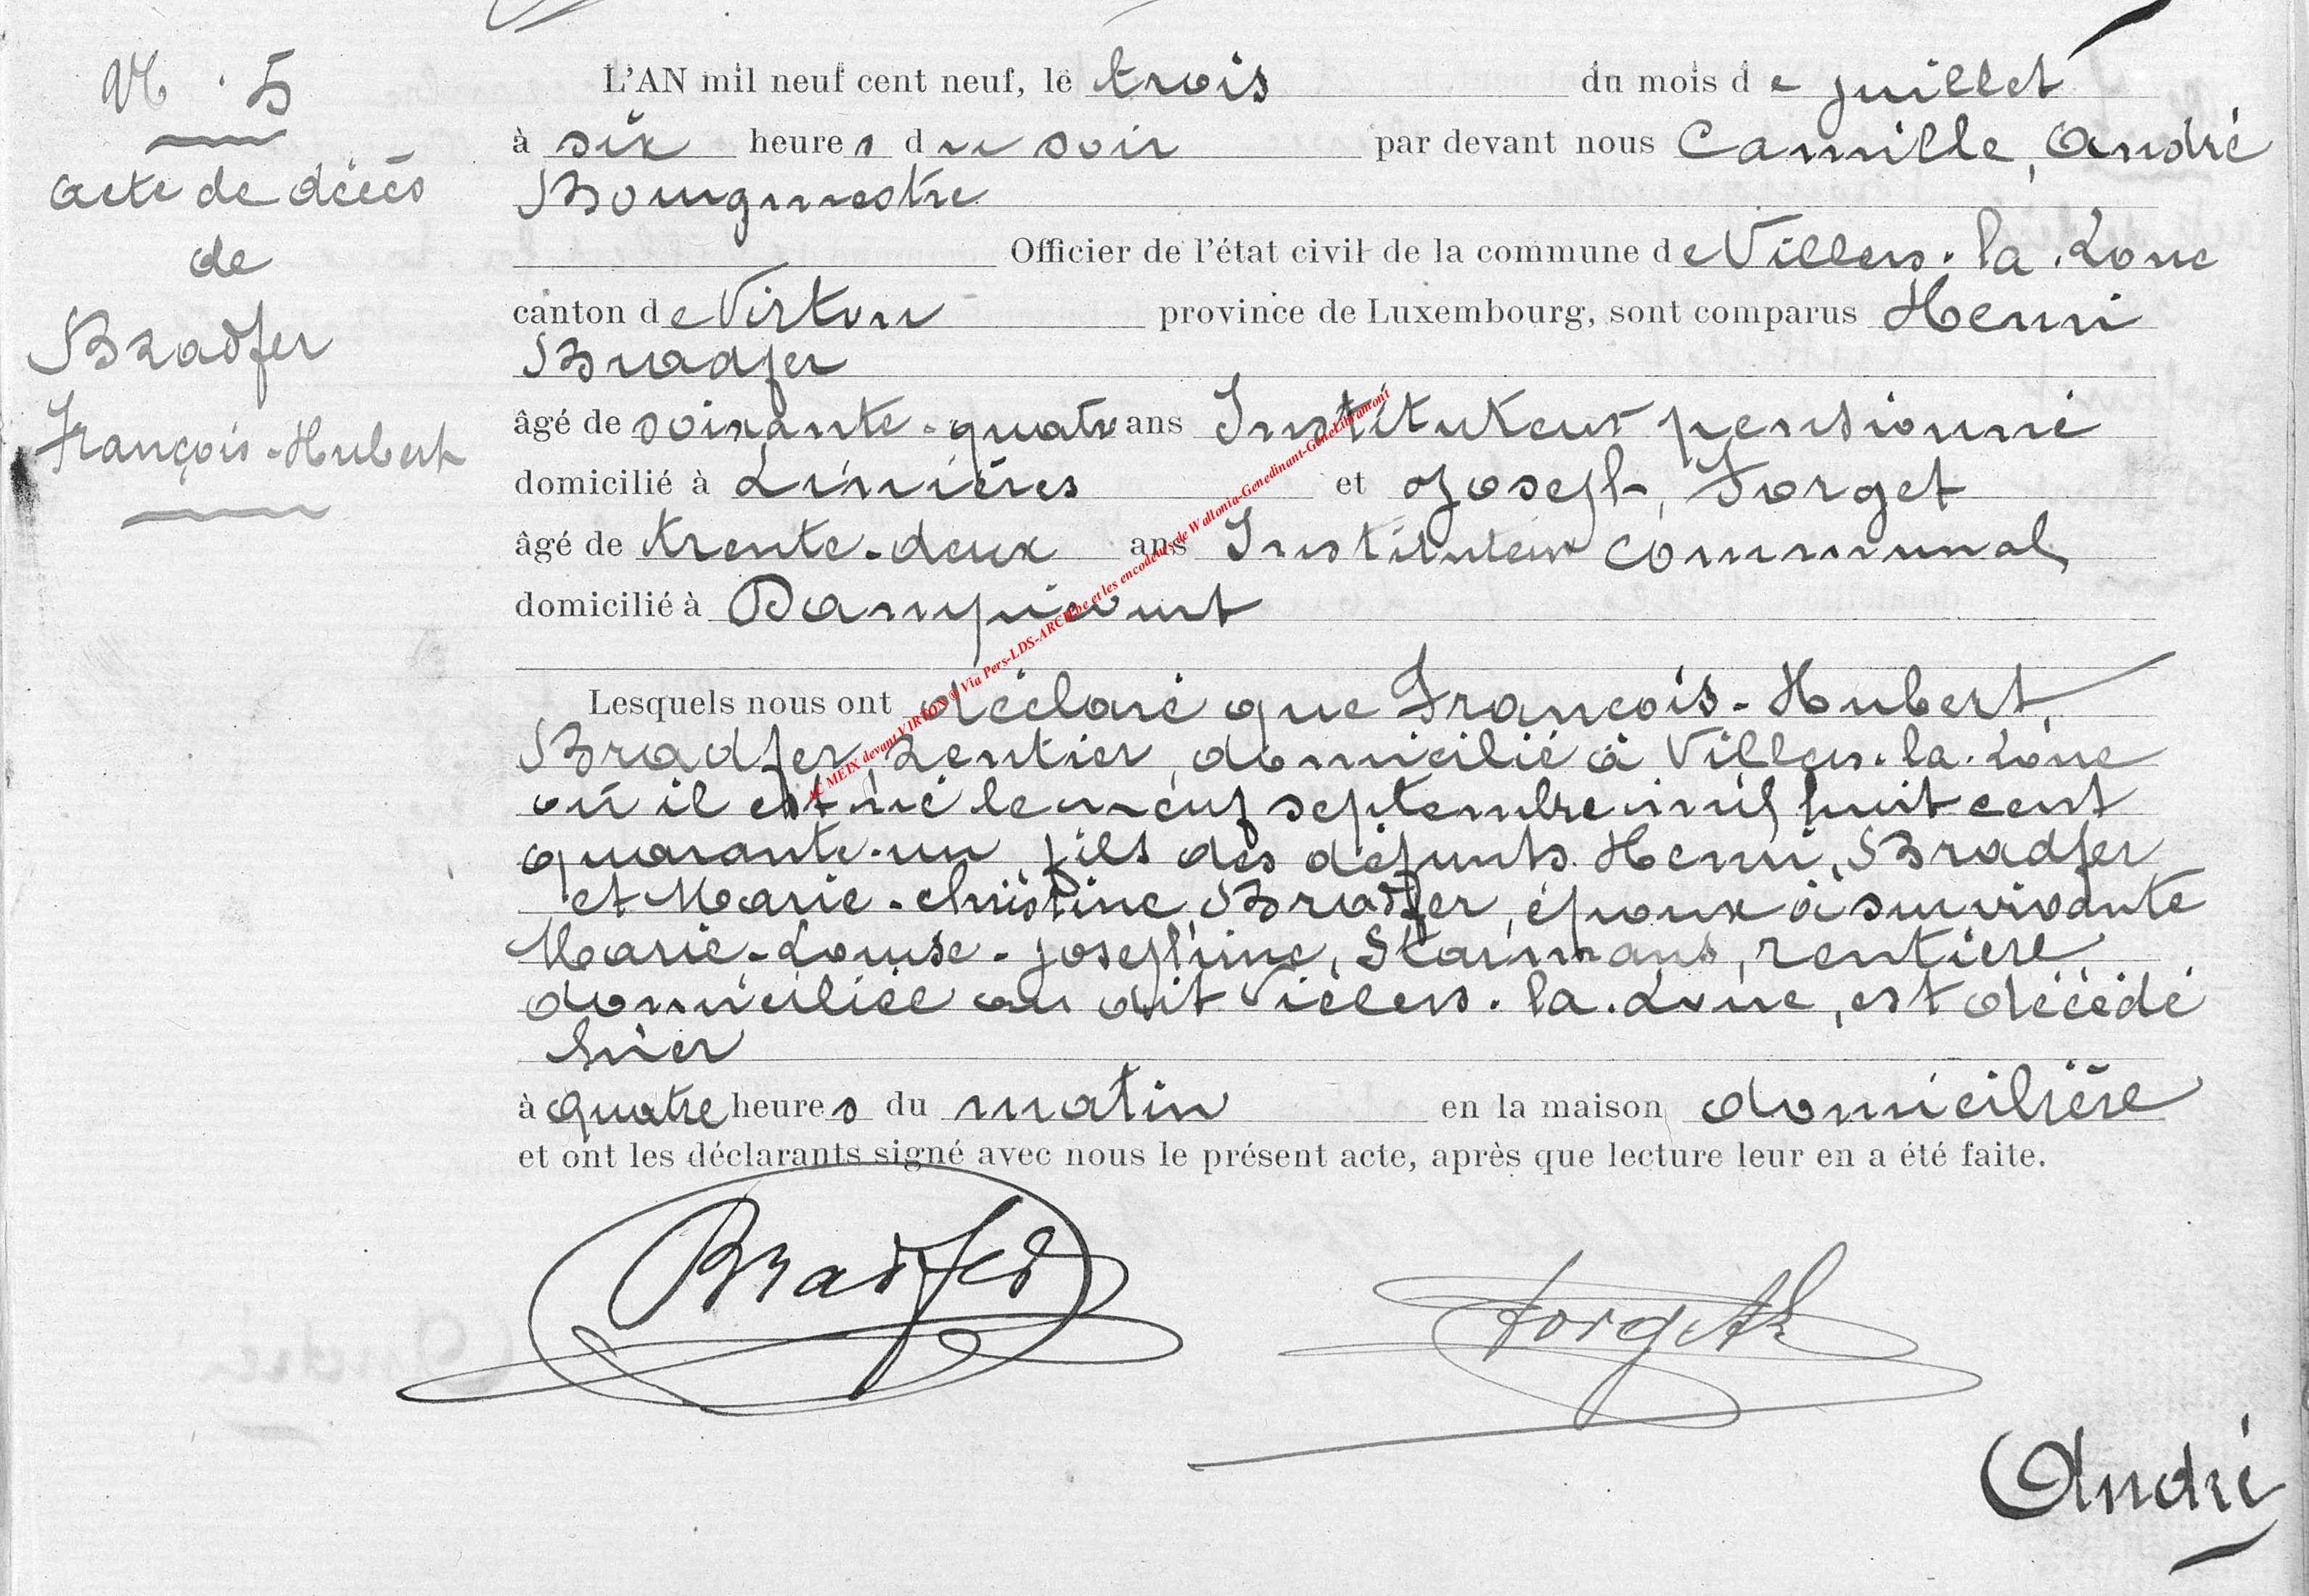 N° 5
Acte de décès
de
Bradfer
François-Hubert
L'AN mil neuf cent neuf, le trois du mois de juillet
à six heures du soir par devant nous Camille, André
Bourgmestre
Officier de l'état civil de la commune de Villers-la-Loue
canton de Virton province de Luxembourg, sont comparus Henri
Bradfer
âgé de soixante-quatre ans Instituteur pensionné
domicilié à Limières et Joseph, Forget
âgé de trente-deux ans Instituteur communal
domicilié à Dampicourt
Lesquels nous ont déclaré que François-Hubert,
Bradfer, rentier, domicilié à Villers-la-Loue
où il est né le neuf septembre mil huit cent
quarante-un fils des défunts Henri, Bradfer
et Marie-christine Bradfer, époux à survivante
Marie-Louise-joséphine, Starmans, rentière
domiciliée au dit Villers-la-Loue, est décédé
hier
à quatre heures du matin en la maison domicilière
et ont les déclarants signé avec nous le présent acte, après que lecture leur en a été faite.
Bradfer
Forget
André
AC MEIX devant VIRTON @ Via Pers-LDS-ARCH.be et les encodeurs de Wallonia-Genedinant-GeneLibramont